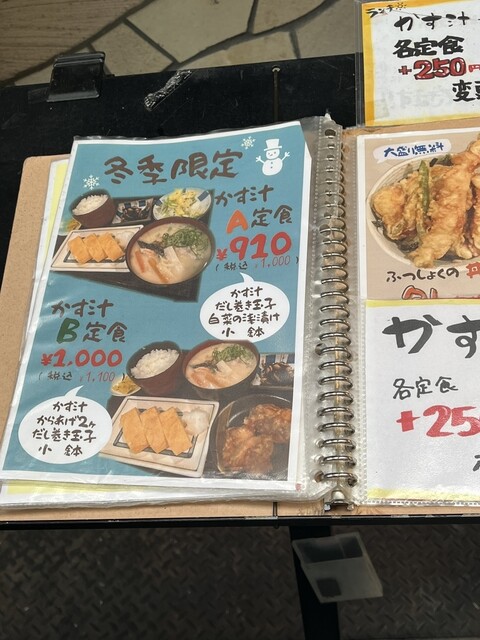 冬季限定
かす汁
A定食
¥910
(税込 ¥1,000)
かす汁
だし巻き玉子
白菜の浅漬け
小鉢
かす汁
B定食
¥1,000
(税込 ¥1,100)
かす汁
からあげ2ヶ
だし巻き玉子
小鉢
ランチ
かす汁
各定食
+250円
変更
大盛り無料
ふつしょくの
かす
各定食
+25